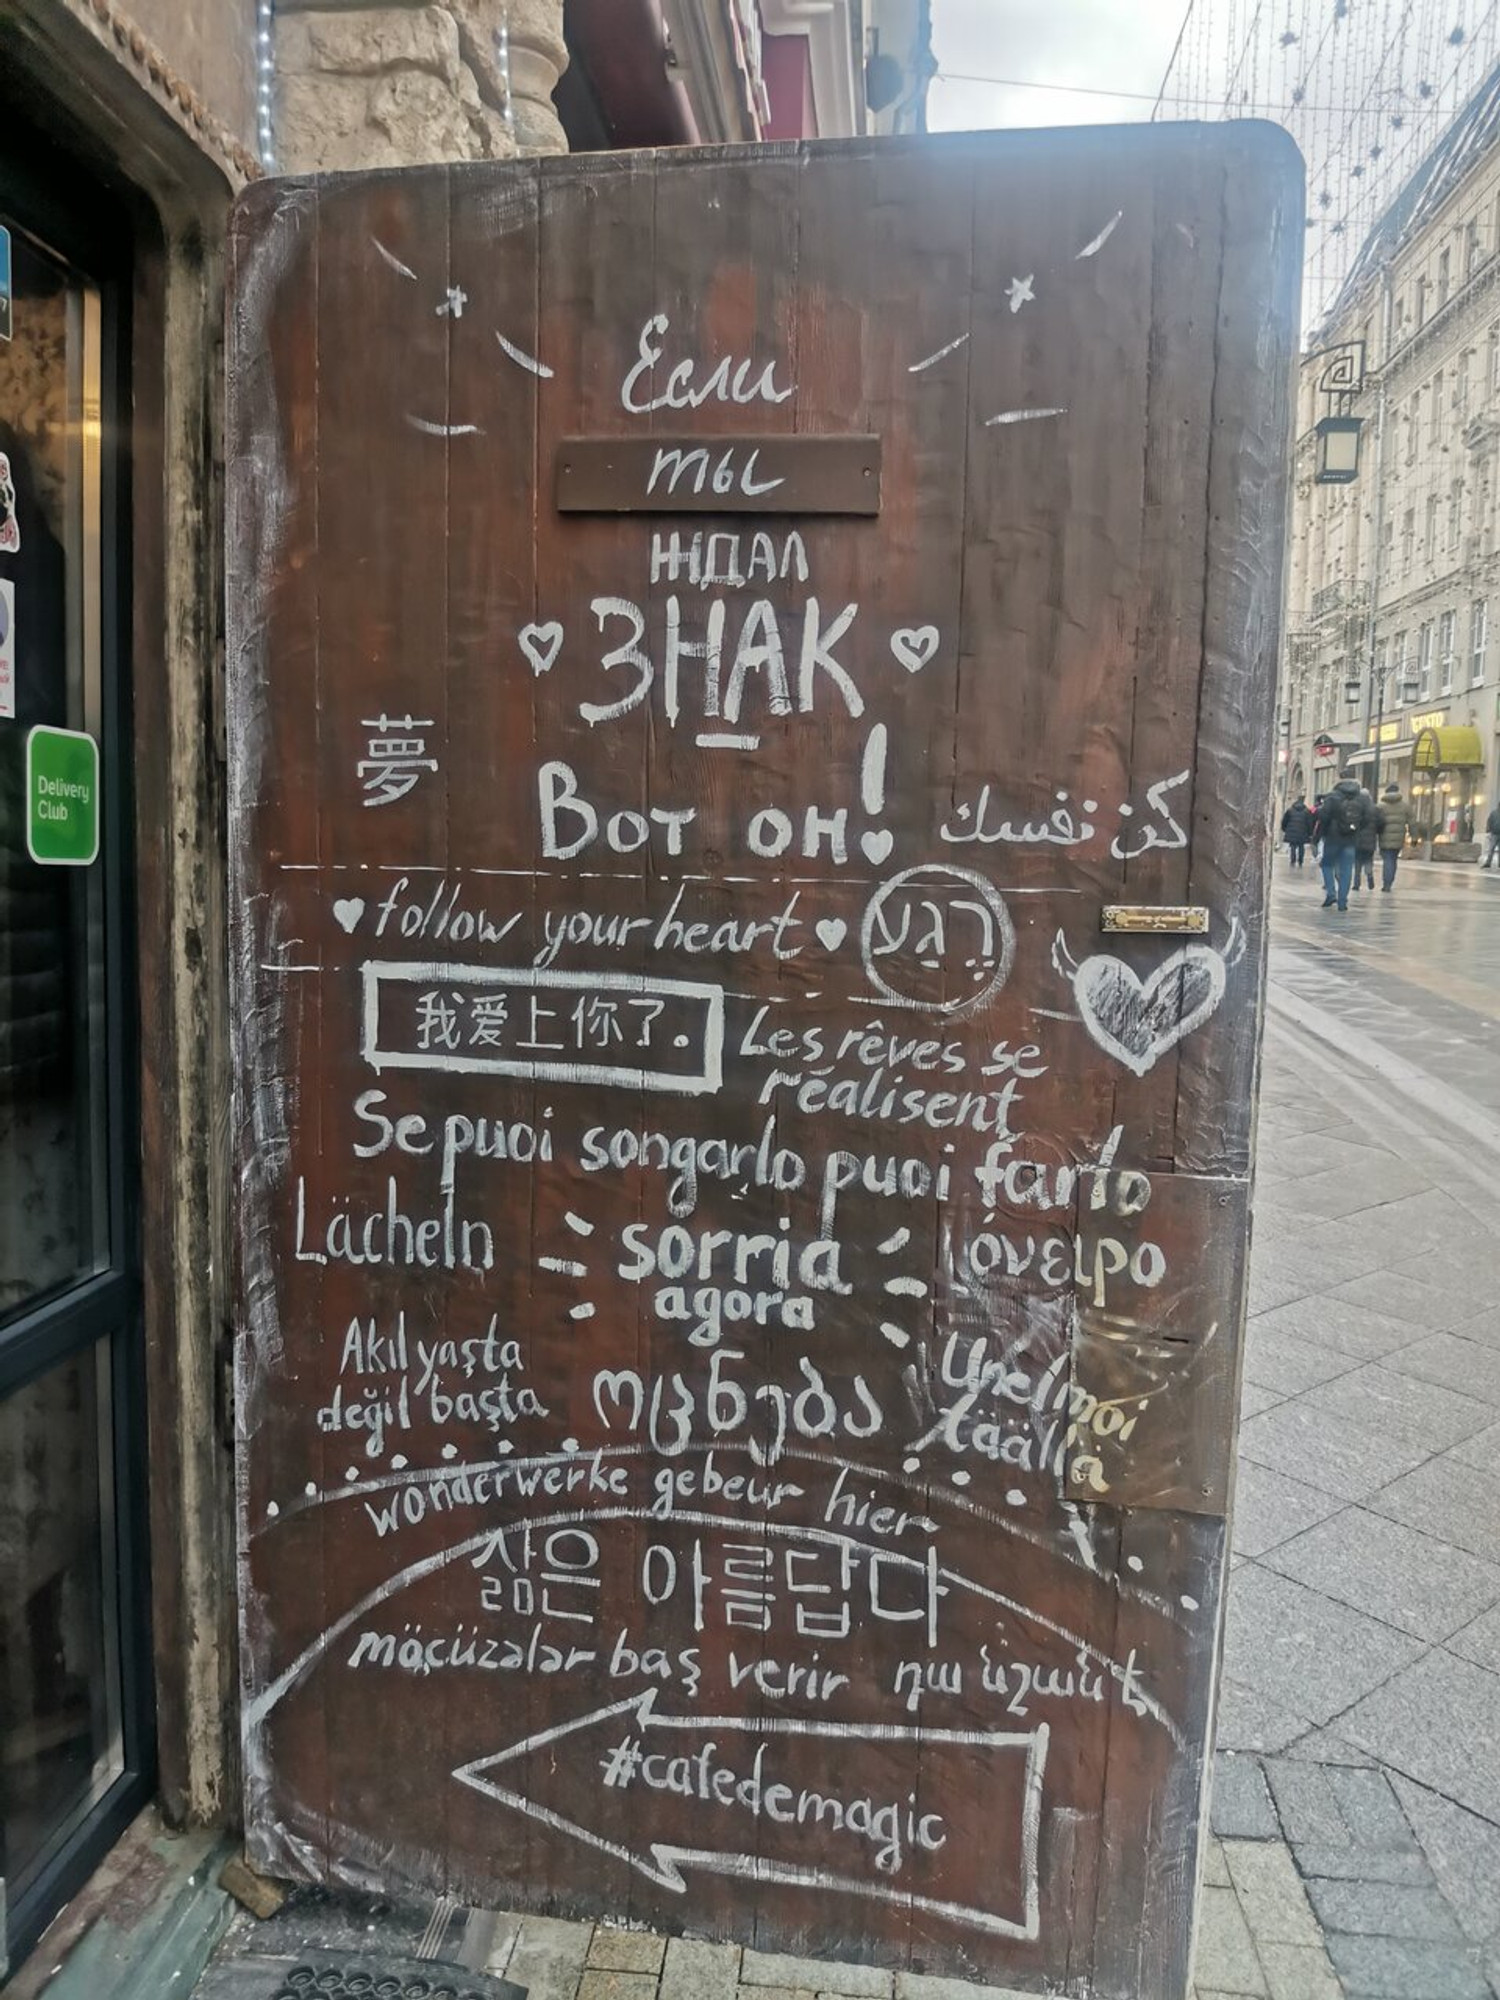 Если
ты
ЖДАЛ
ЗНАК
夢
Вот он!
كن نفسك
Delivery
Club
follow your heart
רֶגַע
我爱上你了.
Les rêves se
réalisent
Se puoi songarlo puoi farlo
Lächeln
sorria
agora
όνειρο
Akıl yaşta
değil başta
ოცნება
Unelmoi
täällä
wonderwerke gebeur hier
삶은 아름답다
möcüzələr baş verir
դա նշան է
#cafedemagic